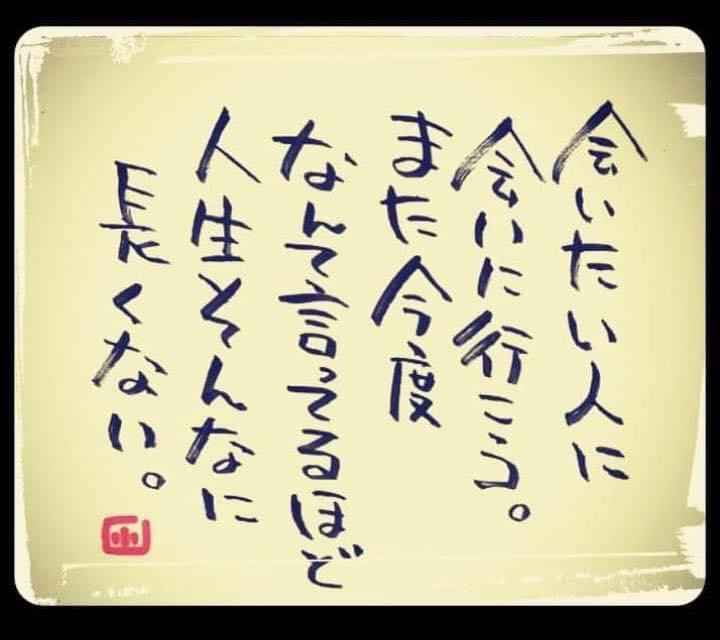 会いたい人に
会いに行こう。
また今度
なんて言ってるほど
人生そんなに
長くない。